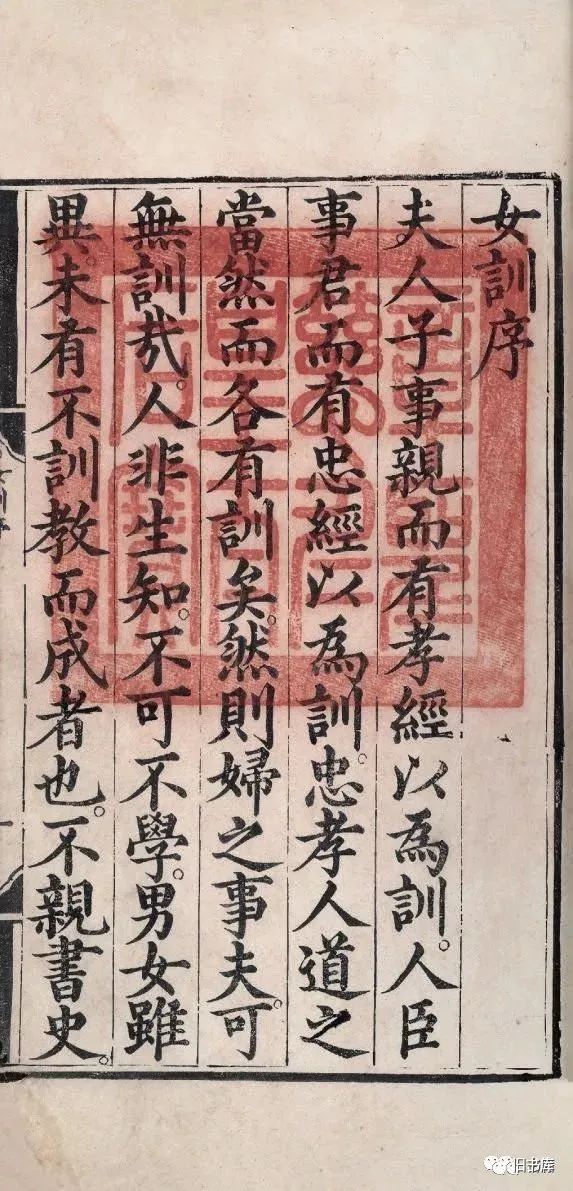 女訓序
夫人子事親而有孝經以為訓。人臣
事君而有忠經以為訓。忠孝人道之
當然而各有訓矣。然則婦之事夫。可
無訓㦲。人非生知。不可不學。男女雖
異。未有不訓教而成者也。不親書史。
旧书库